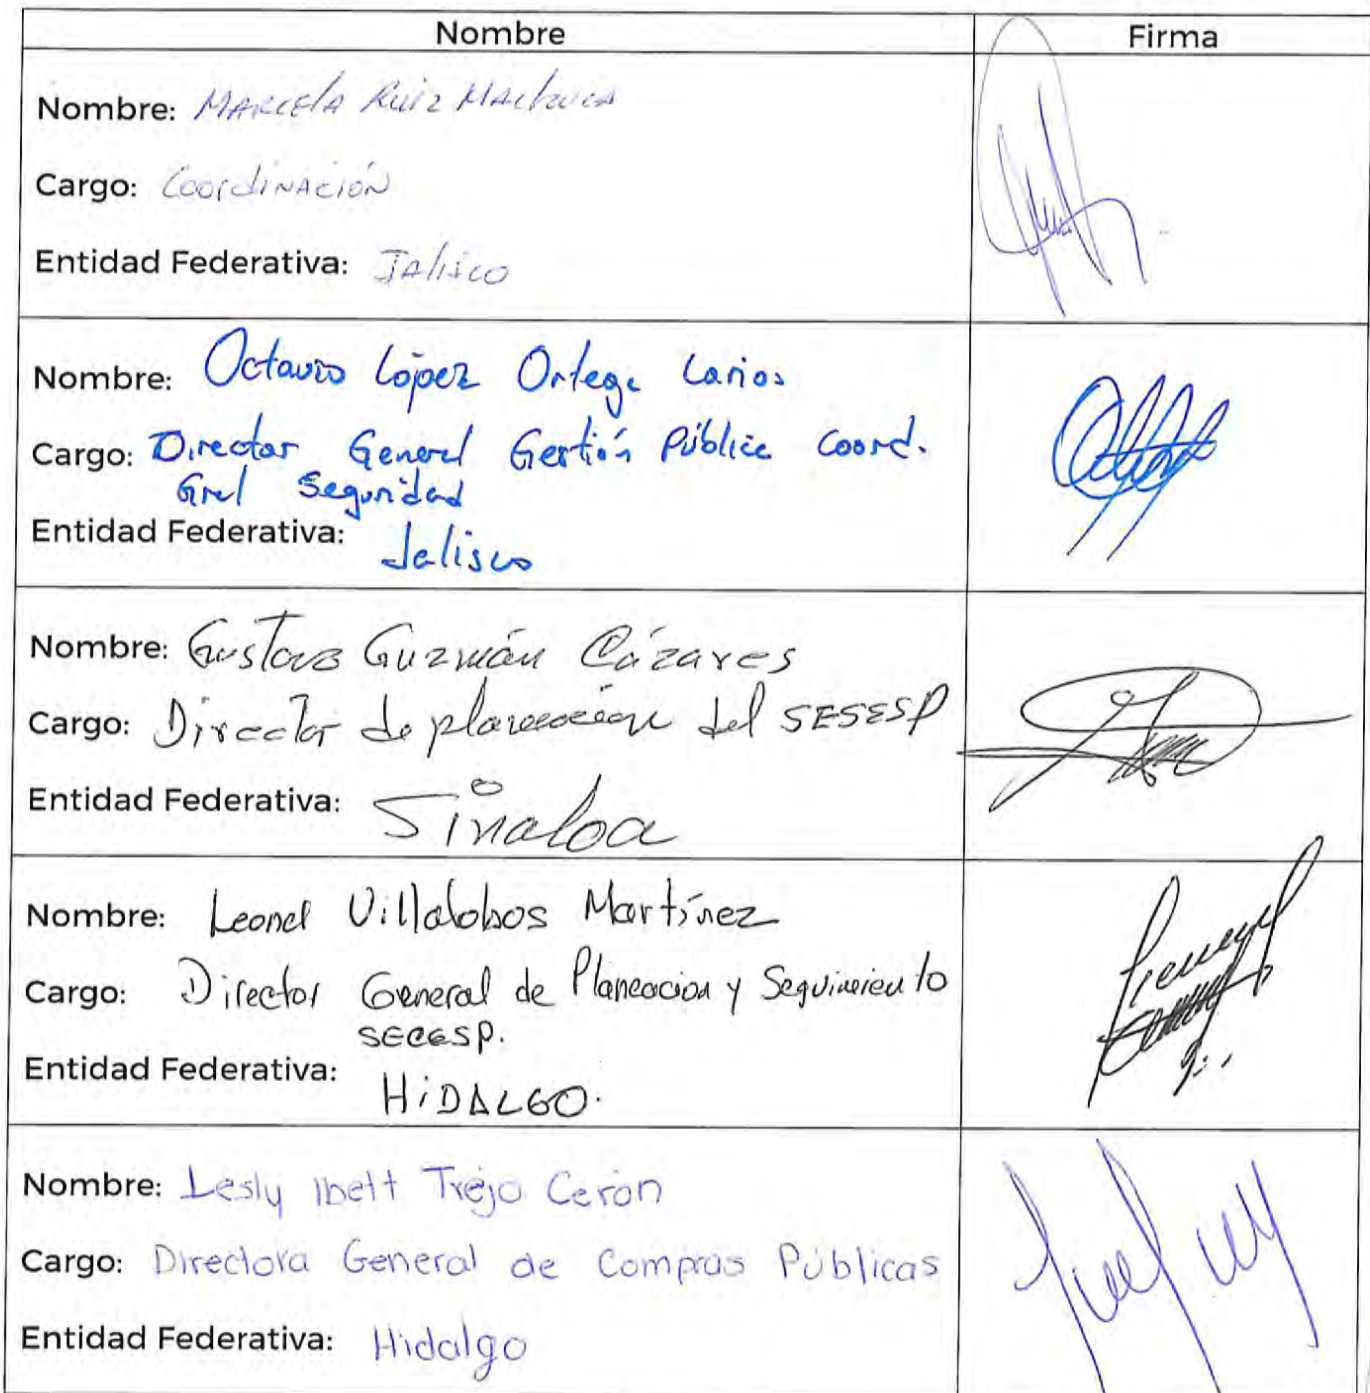 Nombre Firma
Nombre: Marcela Ruiz Machuca
Cargo: Coordinación
Entidad Federativa: Jalisco
Nombre: Octavio López Ortega Larios
Cargo: Director General Gestión Pública Coord.
Gral Seguridad
Entidad Federativa: Jalisco
Nombre: Gustavo Guzmán Cázares
Cargo: Director de planeación del SESESP
Entidad Federativa: Sinaloa
Nombre: Leonel Villalobos Martínez
Cargo: Director General de Planeacion y Seguimiento
SECESP.
Entidad Federativa: HiDALGO.
Nombre: Lesly Ibett Trejo Ceron
Cargo: Directora General de Compras Públicas
Entidad Federativa: Hidalgo